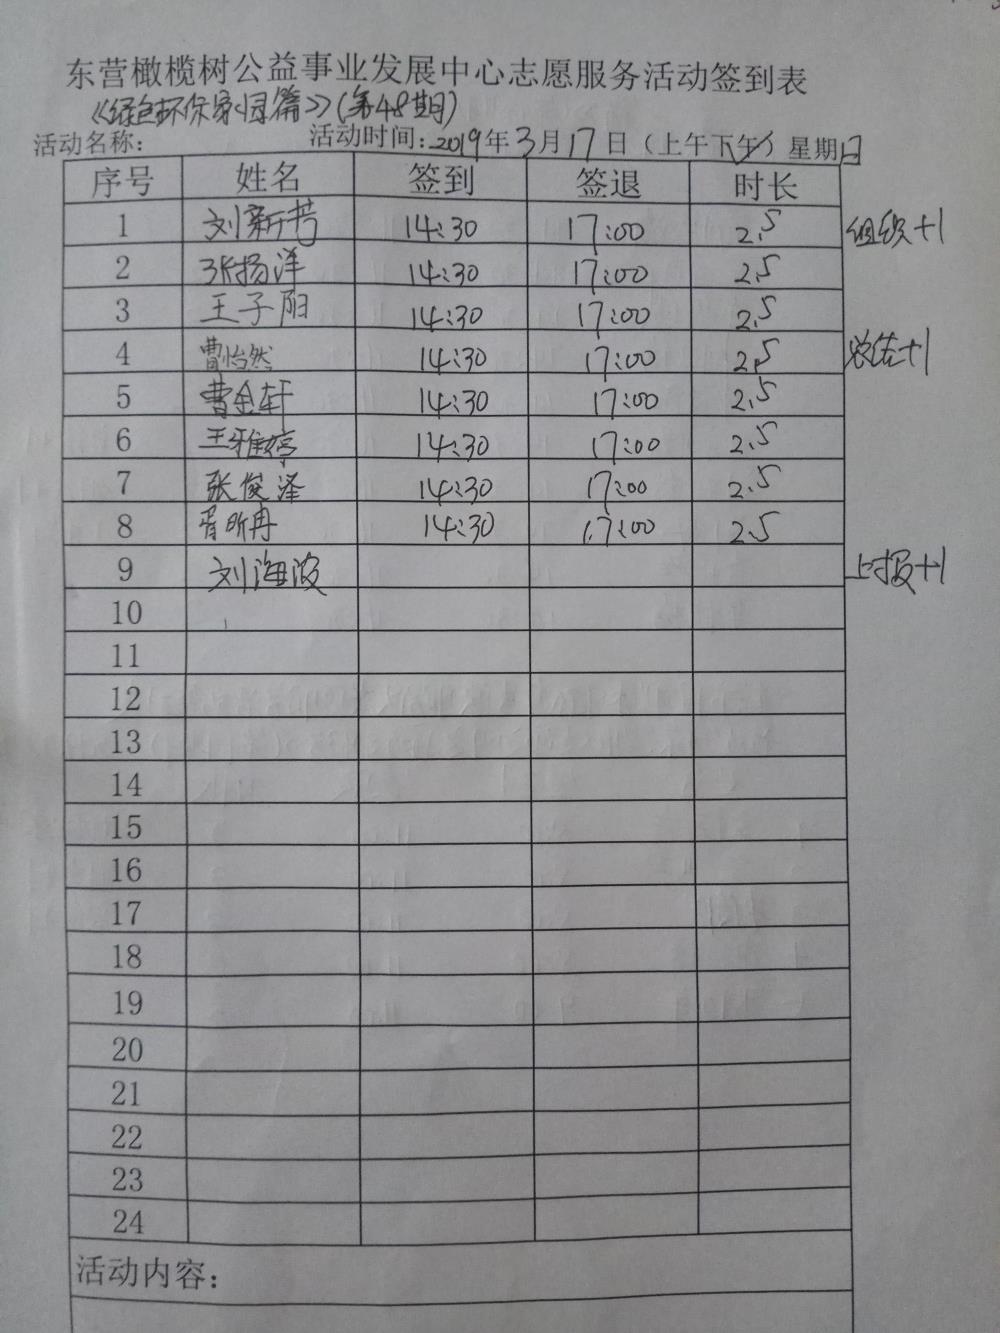 东营橄榄树公益事业发展中心志愿服务活动签到表
《绿色环保家园篇》(第48期)
活动名称: 活动时间: 2019年3月17日（上午下午）星期日
序号 姓名 签到 签退 时长
1 刘新芳 14:30 17:00 2.5 组织+1
2 张扬洋 14:30 17:00 2.5
3 王子阳 14:30 17:00 2.5
4 曹怡然 14:30 17:00 2.5 总结+1
5 曹金轩 14:30 17:00 2.5
6 王雅婷 14:30 17:00 2.5
7 张俊泽 14:30 17:00 2.5
8 胥昕冉 14:30 17:00 2.5
9 刘海波 上报+1
10
11
12
13
14
15
16
17
18
19
20
21
22
23
24
活动内容: